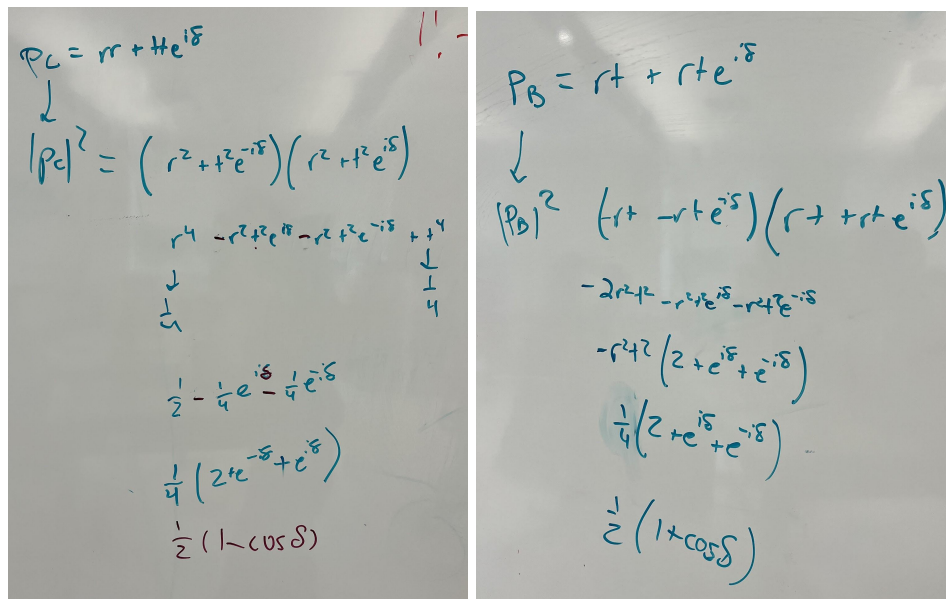 !! -
P_C = rr + tte^{iδ}
↓
|P_C|² = (r² + t²e^{-iδ})(r² + t²e^{iδ})
r⁴ - r²t²e^{iδ} - r²t²e^{-iδ} + t⁴
↓ ↓
1/4 1/4
1/2 - 1/4 e^{iδ} - 1/4 e^{-iδ}
1/4 (2 + e^{-iδ} + e^{iδ})
1/2 (1 - cos δ)
P_B = rt + rte^{iδ}
↓
|P_B|² (-rt - rte^{-iδ})(rt + rte^{iδ})
-2r²t² - r²t²e^{iδ} - r²t²e^{-iδ}
-r²t² (2 + e^{iδ} + e^{-iδ})
1/4 (2 + e^{iδ} + e^{-iδ})
1/2 (1 + cos δ)